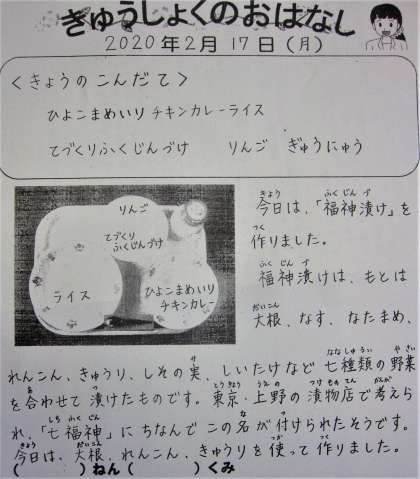 きゅうしょくのおはなし
2020年2月17日(月)
<きょうのこんだて>
ひよこまめいりチキンカレーライス
てづくりふくじんづけ りんご ぎゅうにゅう
りんご
てづくり
ふくじんづけ
ライス
ひよこまめいり
チキンカレー
今日は、「福神漬け」を
作りました。
福神漬けは、もとは
大根、なす、なたまめ、
れんこん、きゅうり、しその実、しいたけなど七種類の野菜
を合わせて漬けたものです。東京・上野の漬物店で考えら
れ、「七福神」にちなんでこの名が付けられたそうです。
今日は、大根、れんこん、きゅうりを使って作りました。
( )ねん( )くみ